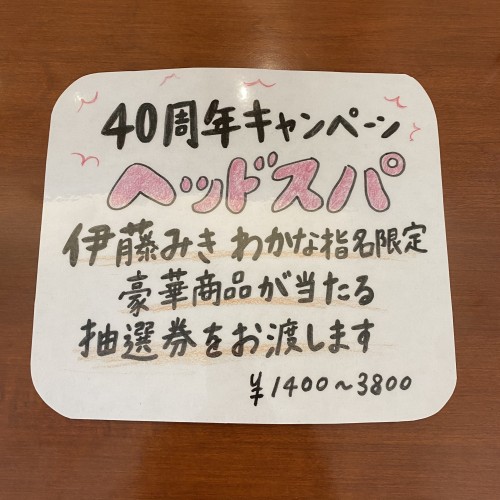 40周年キャンペーン
ヘッドスパ
伊藤みき わかな指名限定
豪華商品が当たる
抽選券をお渡しします
¥1400～3800